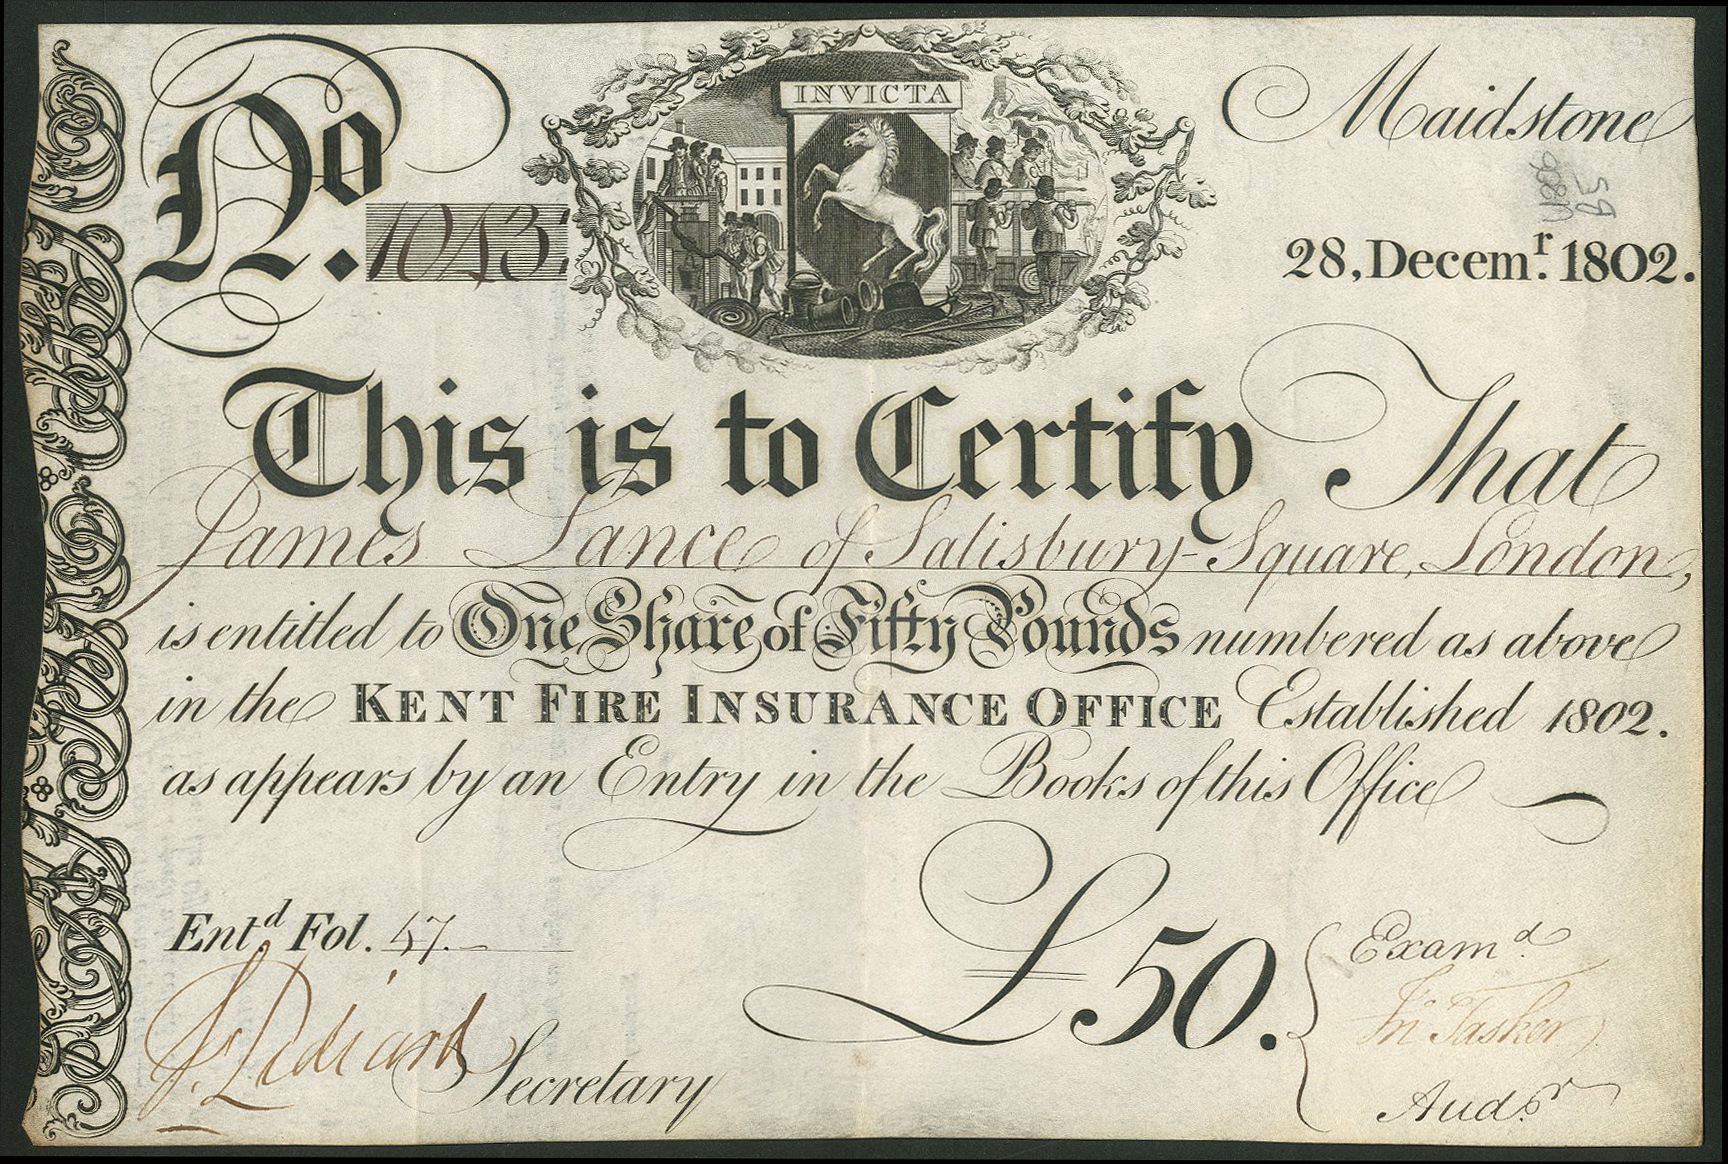 INVICTA
No. 1013.
Maidstone
28, Decem.r 1802.
This is to Certify That
James Lance of Salisbury-Square, London,
is entitled to One Share of Fifty Pounds numbered as above
in the KENT FIRE INSURANCE OFFICE Established 1802.
as appears by an Entry in the Books of this Office
Ent.d Fol. 47.
£50.
Exam.d
Jn Tasker
Aud.r
Secretary